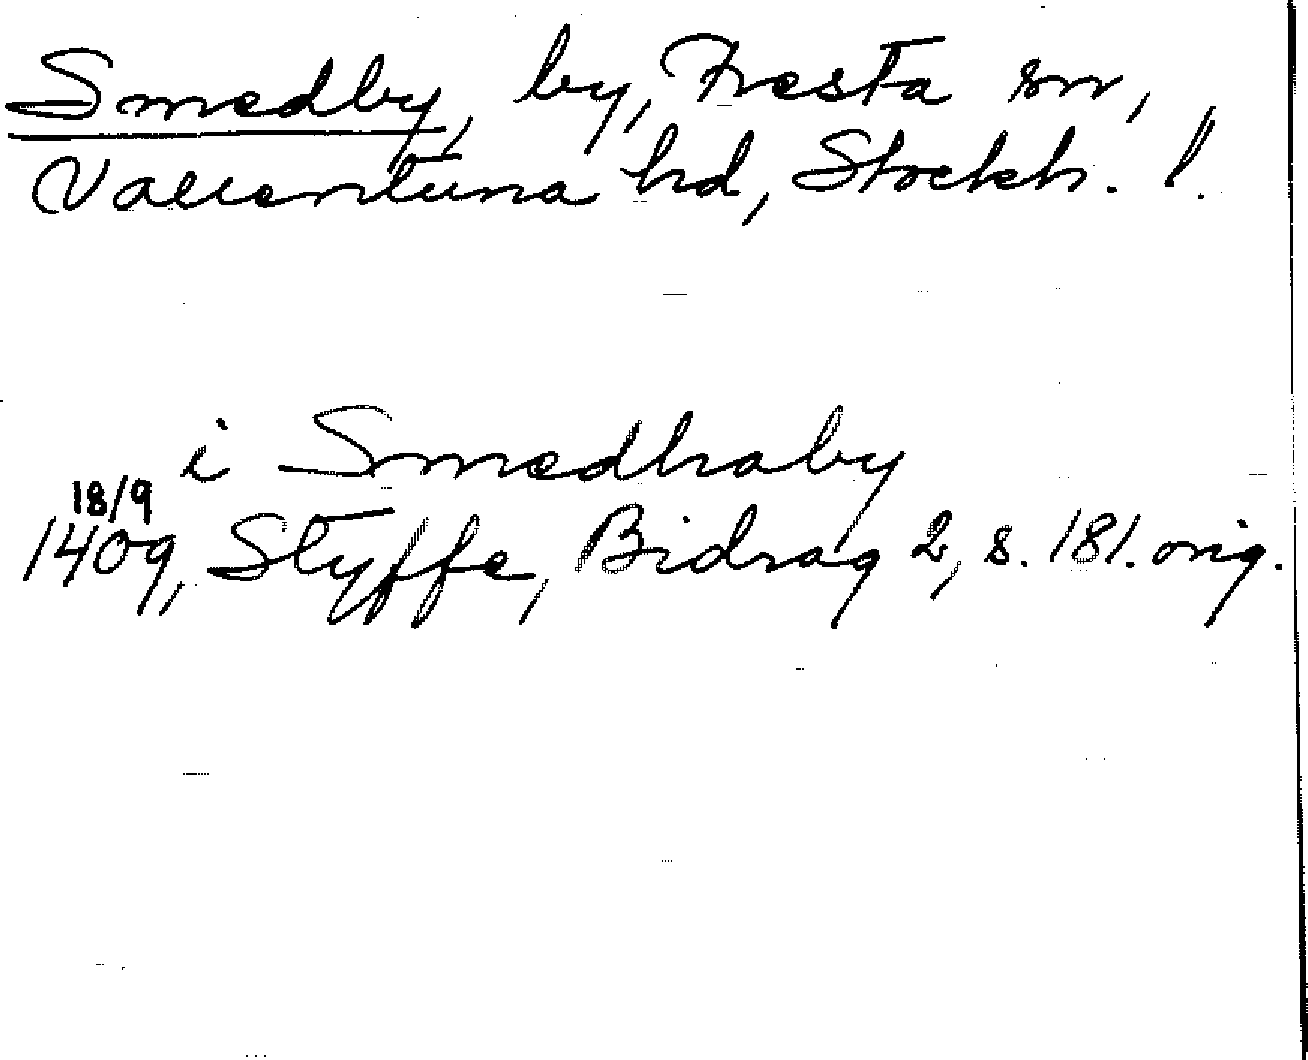 Smedby, by, Fresta sn,
Vallentuna hd, Stockh. l.
i Smedhaby
18/9
1409, Styffe, Bidrag 2, s. 181. orig.